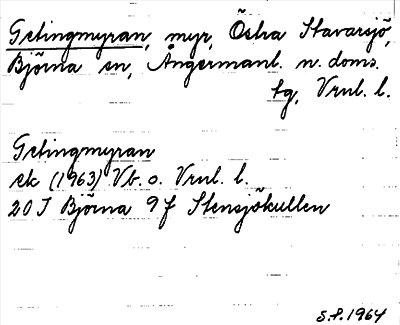 Getingmyran, myr, Östra Stavarsjö,
Björna sn, Ångermanl. n. doms.
tg, Vrnl. l.
Getingmyran
ek (1963) Vb. o. Vrnl. l.
20 J Björna 9 f Stensjökullen
S.P. 1964